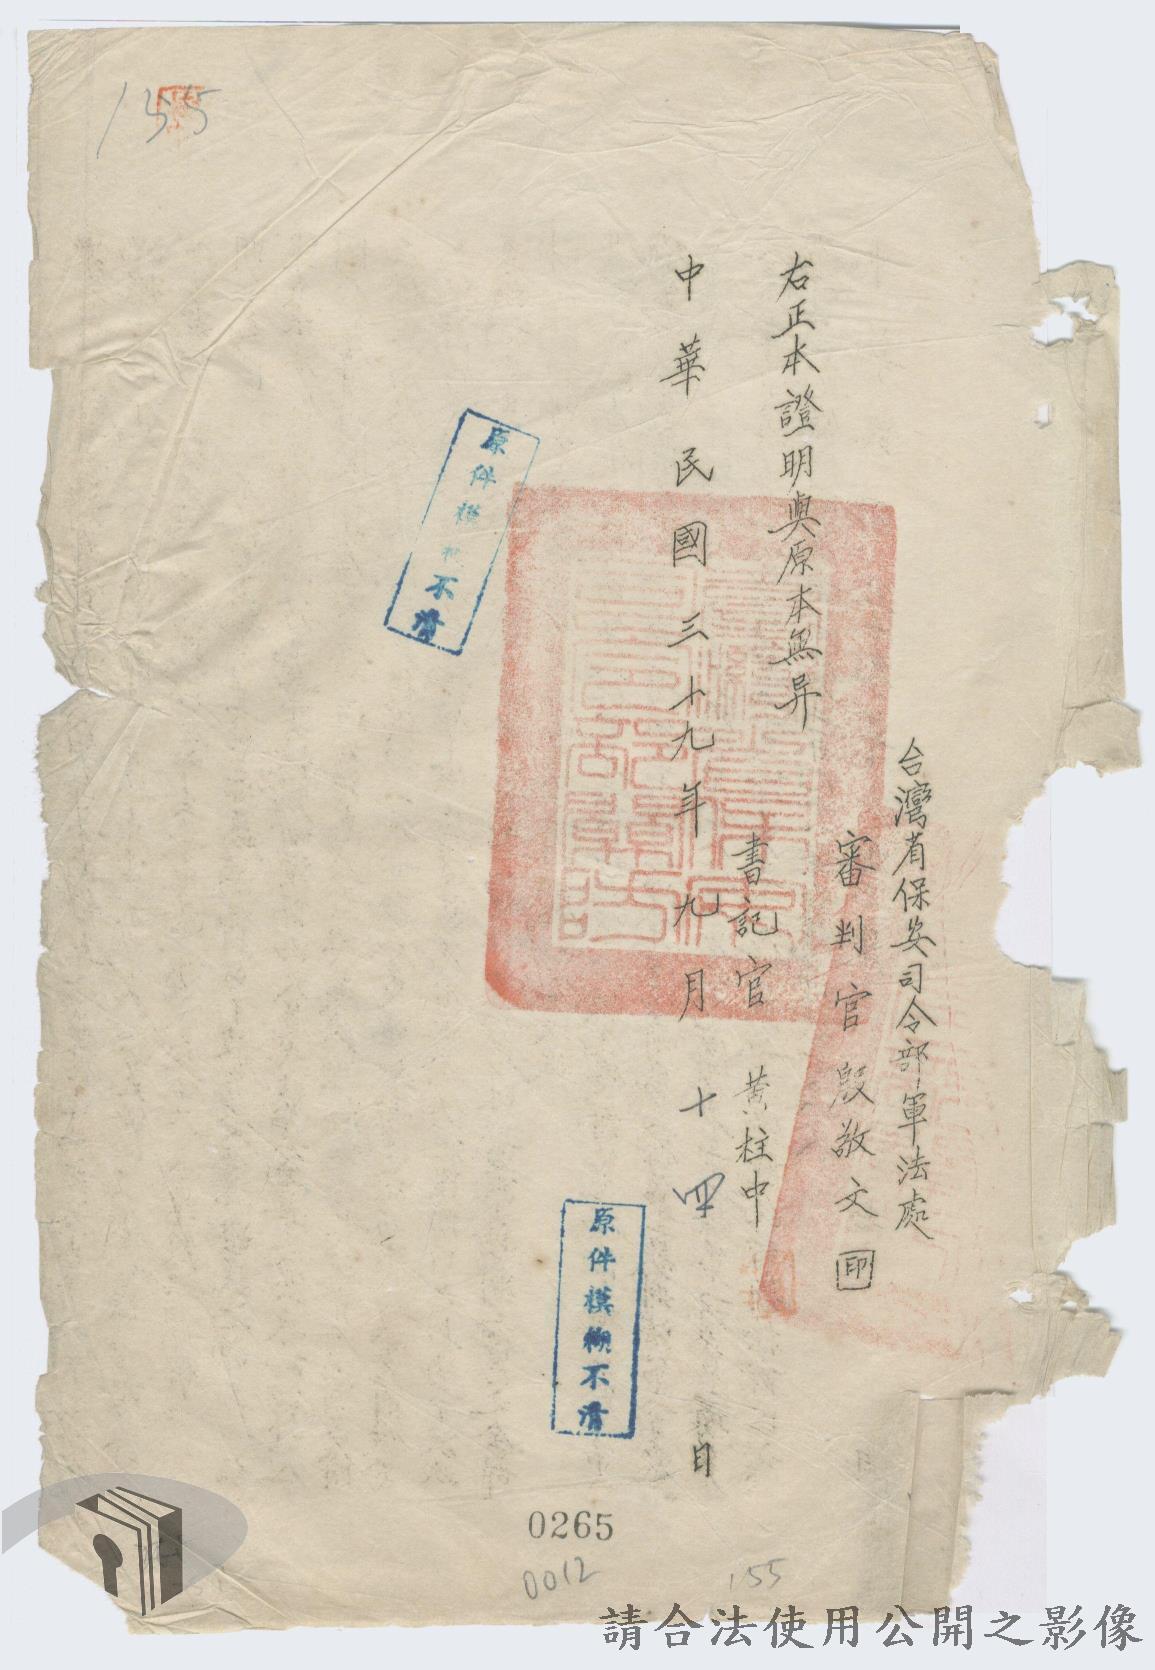 台灣省保安司令部軍法處
審判官殷敬文印
右正本證明與原本無异
書記官黃柱中
中華民國三十九年九月十四日
原件模糊不清
原件模 不清
155
0265
0012
155
請合法使用公開之影像